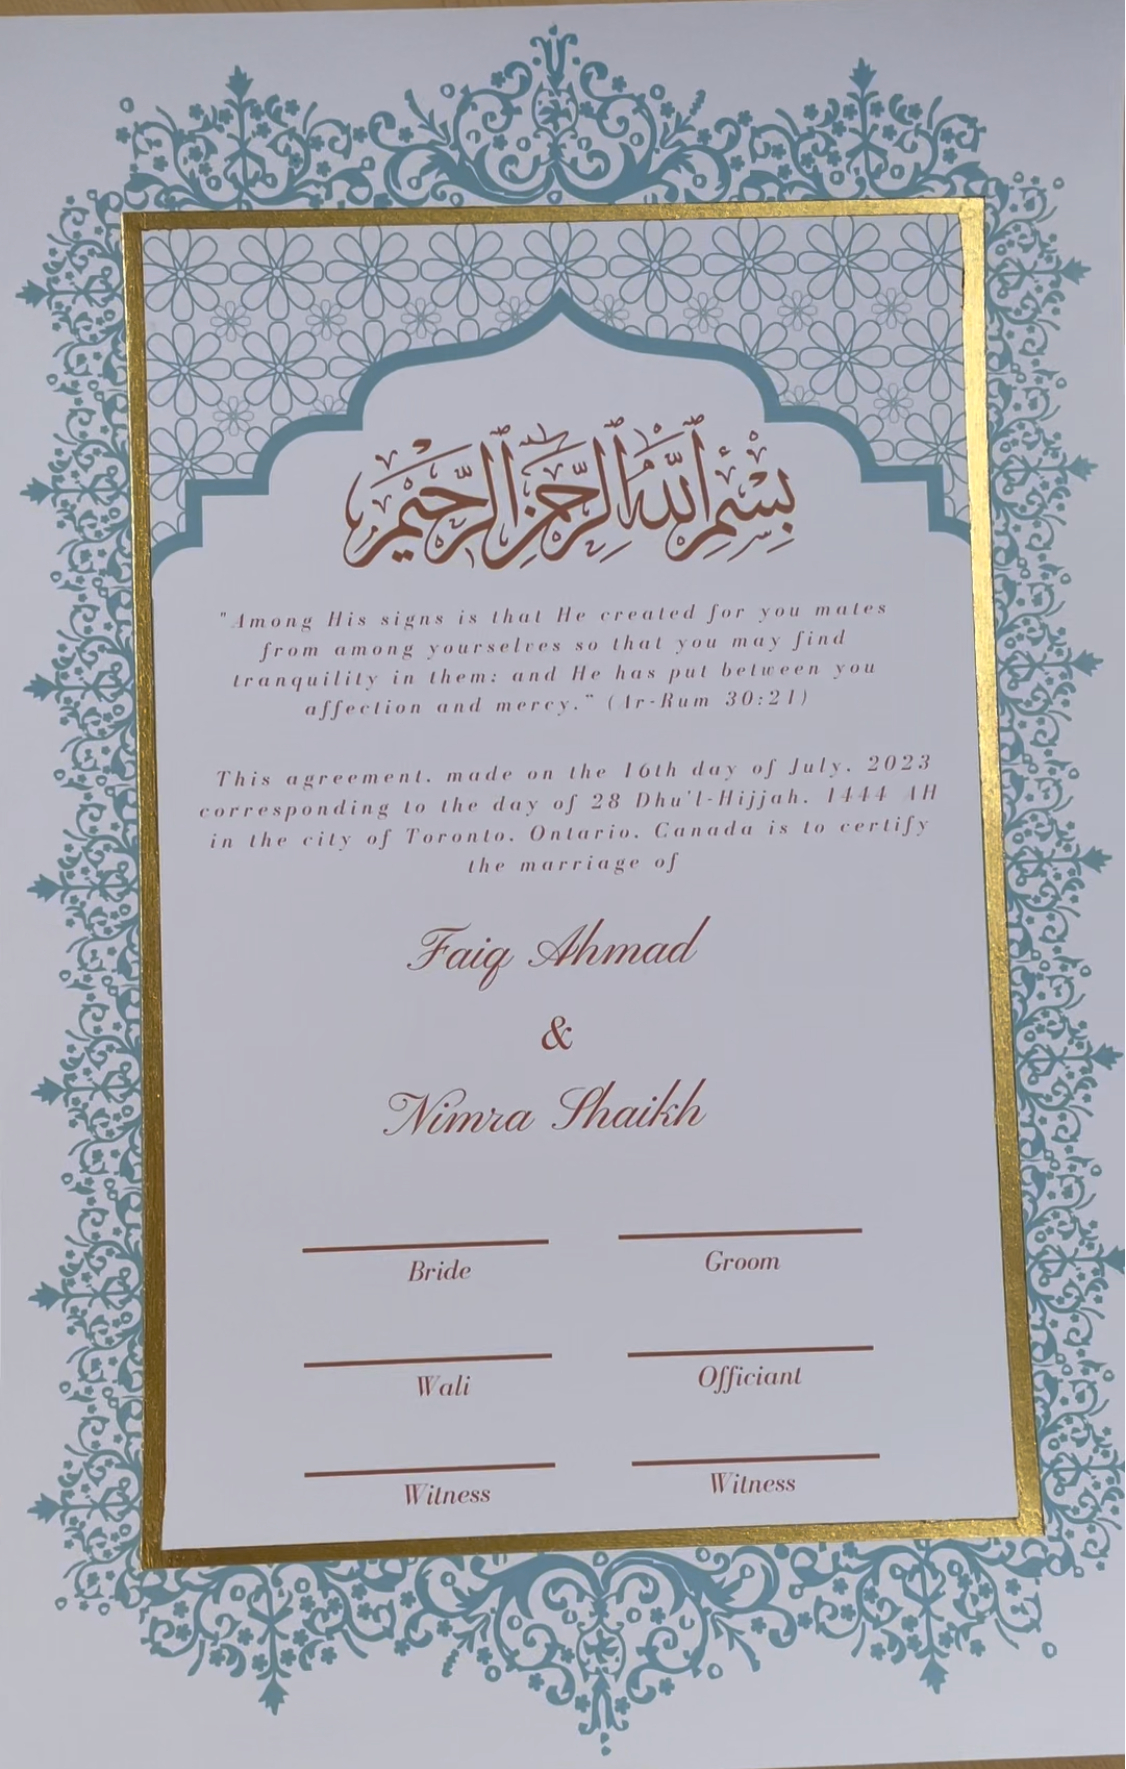 بِسْمِ ٱللَّهِ ٱلرَّحْمَٰنِ ٱلرَّحِيمِ
"Among His signs is that He created for you mates
from among yourselves so that you may find
tranquility in them; and He has put between you
affection and mercy." (Ar-Rum 30:21)
This agreement, made on the 16th day of July, 2023
corresponding to the day of 28 Dhu'l-Hijjah, 1444 AH
in the city of Toronto, Ontario, Canada is to certify
the marriage of
Faiq Ahmad
&
Nimra Shaikh
Bride Groom
Wali Officiant
Witness Witness